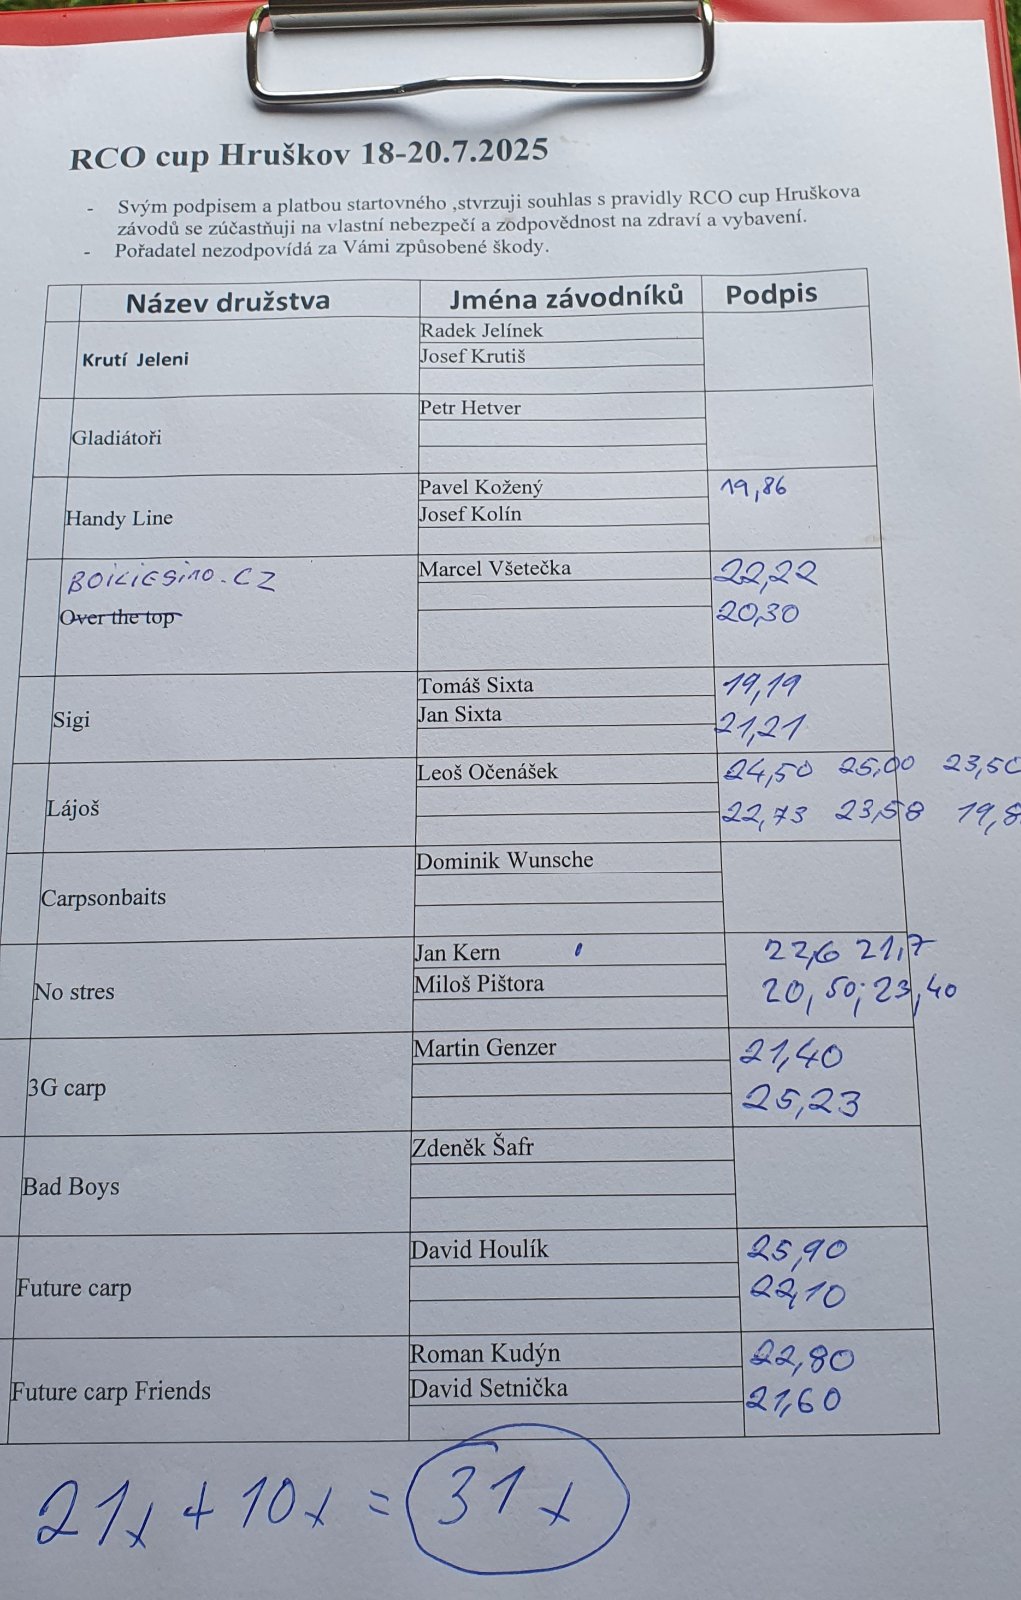 RCO cup Hruškov 18-20.7.2025
- Svým podpisem a platbou startovného ,stvrzuji souhlas s pravidly RCO cup Hruškova
závodů se zúčastňuji na vlastní nebezpečí a zodpovědnost na zdraví a vybavení.
- Pořadatel nezodpovídá za Vámi způsobené škody.
Název družstva Jména závodníků Podpis
Radek Jelínek
Krutí Jeleni Josef Krutiš
Petr Hetver
Gladiátoři
Pavel Kožený 19,86
Handy Line Josef Kolín
BOILIESINO.CZ Marcel Všetečka 22,22
Over the top 20,30
Tomáš Sixta 19,19
Sigi Jan Sixta 21,21
Leoš Očenášek 24,50 25,00 23,50
Lájoš 22,73 23,58 19,8
Dominik Wunsche
Carpsonbaits
Jan Kern 22,6 21,7
No stres Miloš Pištora 20,50; 23,40
Martin Genzer 21,40
3G carp 25,23
Zdeněk Šafr
Bad Boys
David Houlík 25,90
Future carp 22,10
Roman Kudýn 22,80
Future carp Friends David Setnička 21,60
21x + 10x = 31x